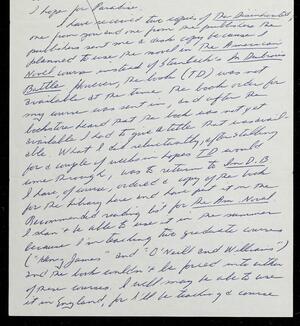 I hope for Paradise.
I have received two copies of The Disenchanted,
one from you and one from the publishers. The
publishers sent me a desk copy because I
planned to use the novel in The American
Novel course instead of Steinbeck's In Dubious
Battle. However the book (TD) was not
available at the time the book order for
my course was sent in, and after the
bookstore heard that the book was not yet
available I had to give a title that was avail-
able. What I did, reluctantly, after stalling
for a couple of weeks in hopes TD would
come through, was to return to In D.B.
I have, of course, ordered a copy of the book
for the library here and have put it on the
Recommended reading list for The Am. Novel
I shan't be able to use it in the summer
because I'm teaching two graduate courses
("Henry James" and "O'Neill and Williams")
and the book wouldn't be forced into either
of these courses. I will may be able to use
it in England, for I'll be teaching a course